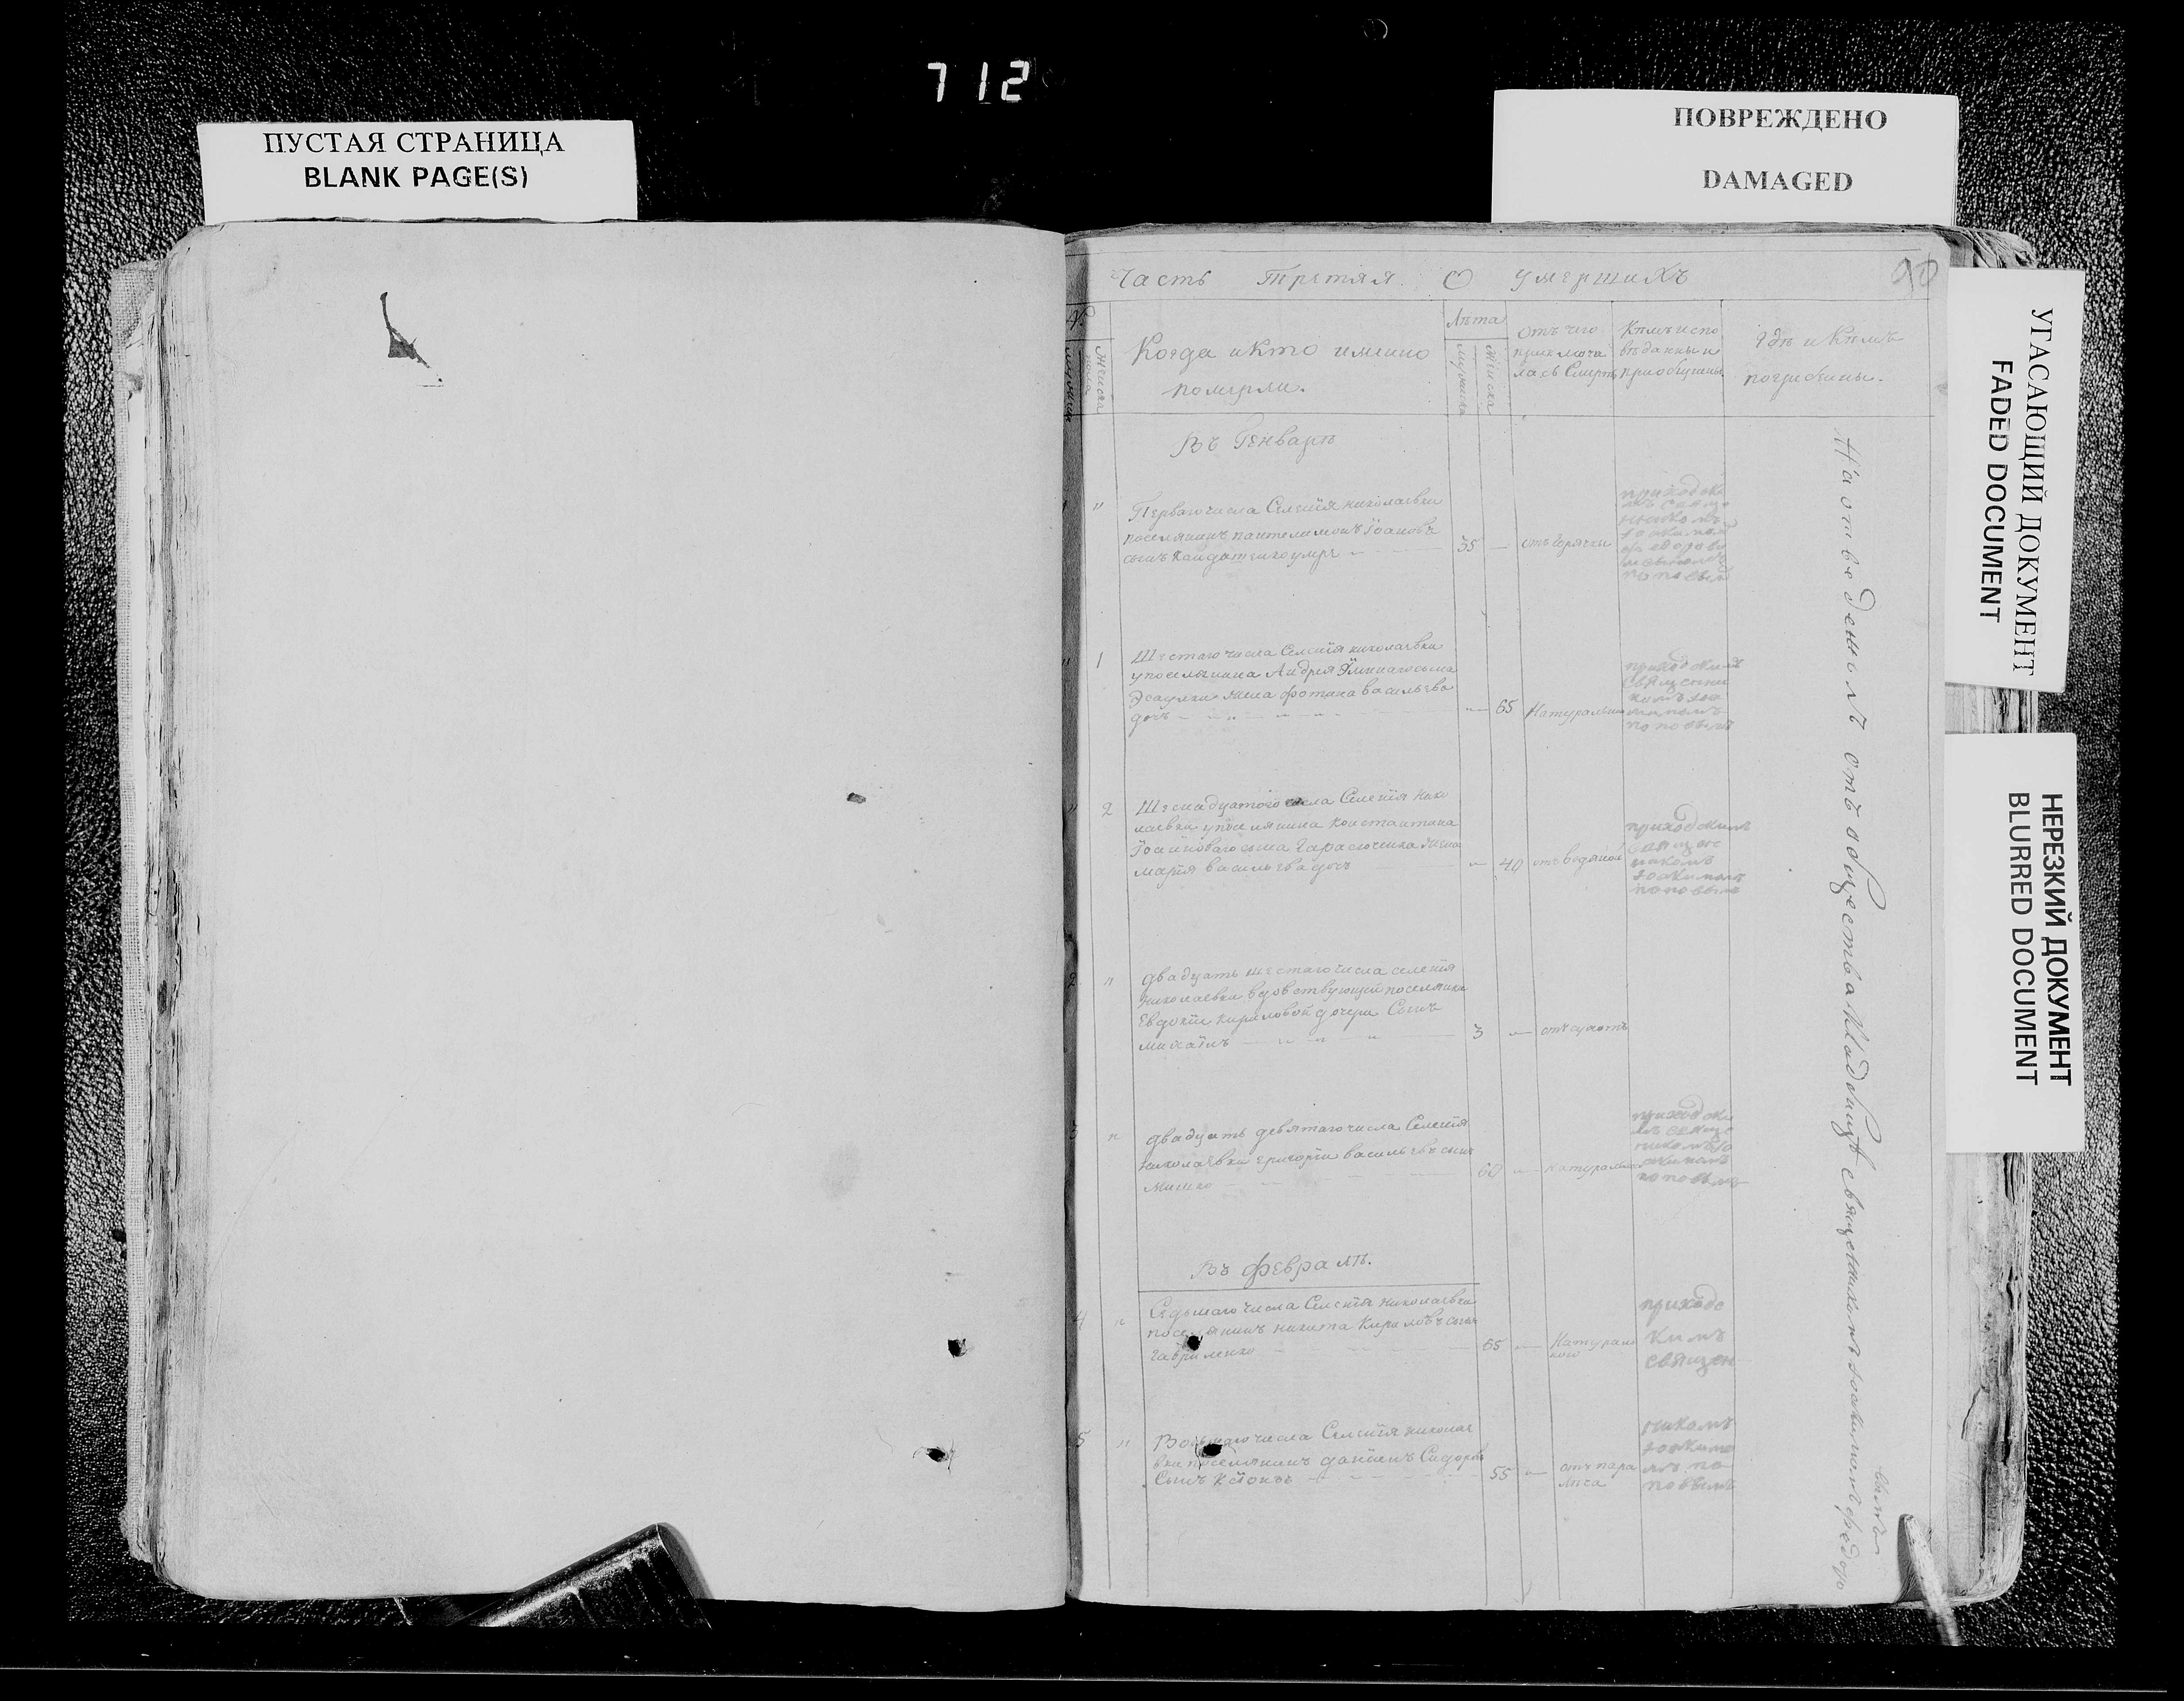 712
ПУСТАЯ СТРАНИЦА
BLANK PAGE(S)
ПОВРЕЖДЕНО
DAMAGED
УГАСАЮЩИЙ ДОКУМЕНТ
FADED DOCUMENT
НЕРЕЗКИЙ ДОКУМЕНТ
BLURRED DOCUMENT
90
Часть Третяя. О умершихъ
№
Женска
Когда и кто имянно
померли.
Лѣта
мужска
женска
Отъ чего
приключи
лась Смерть
Кѣмъ испо
вѣданны и
приобщены
Гдѣ и Кѣмъ
погребены.
Въ Генварѣ
1 "
Перваго числа Селенія николаевки
поселянинъ пантелимонъ Іоановъ
сынъ умре
35 — отъ горячки
" 1
Шестаго числа Селенія николаевки
упоселянина Андрея сына
жена Фотина васильева
дочь
65 Натурально
приходскимъ
священи
комъ Іоа
кимомъ
поповымъ
" 2
Шеснадцатого числа Селенія нико
лаевки упоселянина Константина
сына жена
марія васильева дочь
40 отъ водяной
приходскимъ
священ
никомъ
Іоакимомъ
поповымъ
2 "
двадцать шестаго числа селенія
николаевки вдовствующій поселянки
Евдокіи кириловой дочери Сынъ
михаилъ
3 —
3 "
двадцать девятаго числа Селенія
николаевки григорій васильевъ сынъ
60 — натурально
приходски
мъ свяще
никомъ Іо
акимомъ
поповымъ
Въ Февралѣ.
4 "
Седьмаго числа Селенія николаевки
поселянинъ никита Кириловъ сынъ
гавриленко
65 — Натураль
ною
приходс
кимъ
священ
5 "
Восьмаго числа Селенія николае
вки поселянинъ даніилъ Сидоровъ
Сынъ
55 — отъ пара
лича
никомъ
Іоакимо
мъ по
повымъ
На отведенномъ отъ общества кладбищѣ священникомъ Іоакимомъ